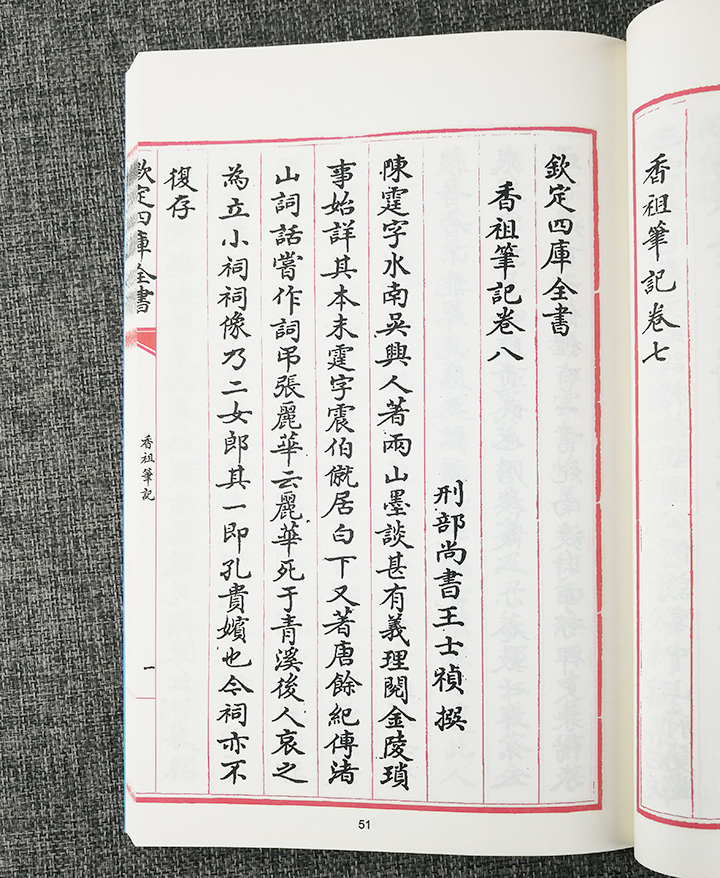 香祖筆記卷七
欽定四庫全書
香祖筆記卷八
刑部尚書王士禎撰
陳霆字水南吳興人著兩山墨談甚有義理閱金陵瑣
事始詳其本末霆字震伯僦居白下又著唐餘紀傳渚
山詞話嘗作詞弔張麗華云麗華死于青溪後人哀之
為立小祠祠像乃二女郎其一即孔貴嬪也今祠亦不
復存
欽定四庫全書
香祖筆記
一
51